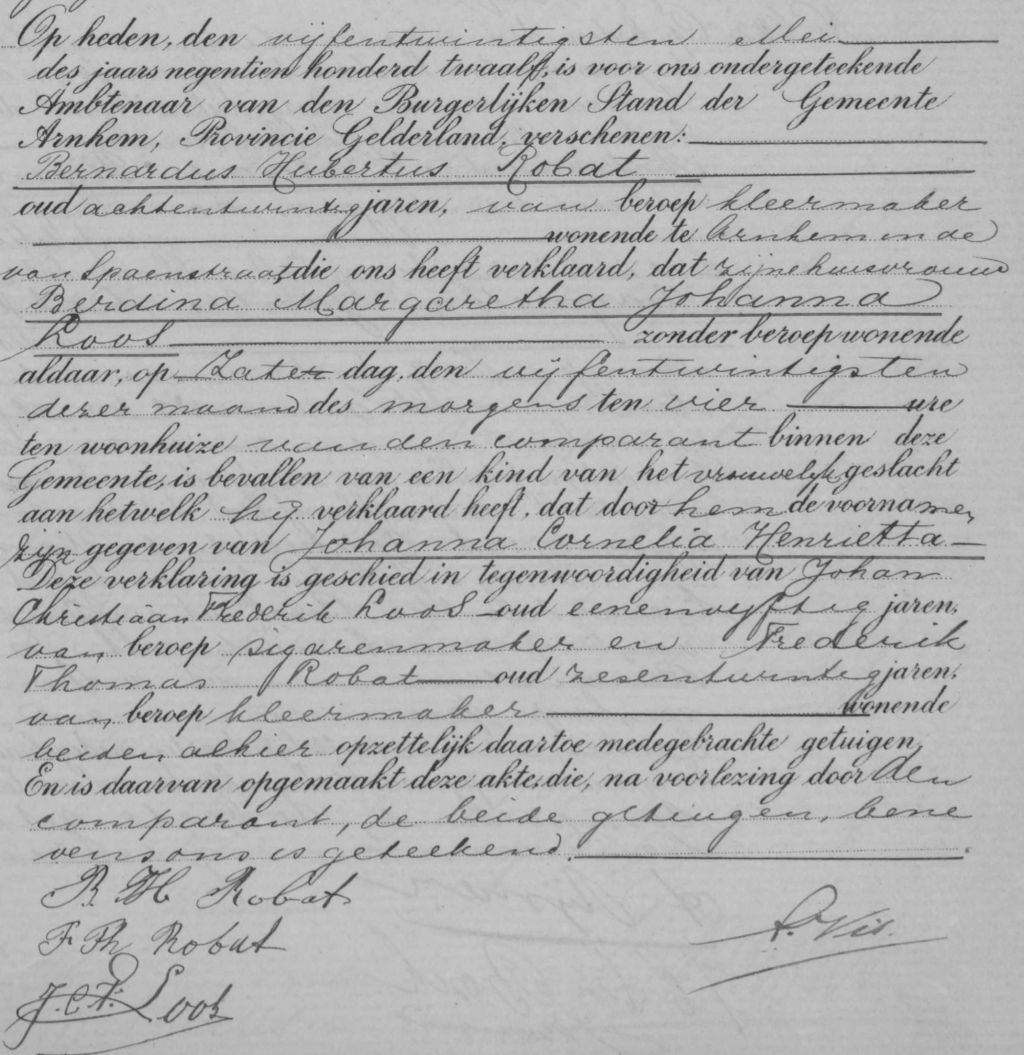 Op heden, den vijfentwintigsten Mei
des jaars negentien honderd twaalf, is voor ons ondergeteekende
Ambtenaar van den Burgerlijken Stand der Gemeente
Arnhem, Provincie Gelderland, verschenen:
Bernardus Hubertus Robat
oud achtentwintig jaren, van beroep kleermaker
wonende te Arnhem in de
van Spaenstraat, die ons heeft verklaard, dat zijne huisvrouw
Berdina Margaretha Johanna
Loos zonder beroep wonende
aldaar, op Zater dag, den vijfentwintigsten
dezer maand des morgens ten vier ure
ten woonhuize van den comparant binnen deze
Gemeente, is bevallen van een kind van het vrouwelijk geslacht
aan hetwelk hij verklaard heeft, dat door hem de voornamen
zijn gegeven van Johanna Cornelia Henrietta
Deze verklaring is geschied in tegenwoordigheid van Johan
Christiaan Frederik Loos oud eenenvijftig jaren,
van beroep sigarenmaker en Frederik
Thomas Robat oud zesentwintig jaren,
van beroep kleermaker wonende
beiden alhier opzettelijk daartoe medegebrachte getuigen,
En is daarvan opgemaakt deze akte, die, na voorlezing door den
comparant, de beide getuigen, bene
vens ons is geteekend.
B H Robat
F Th Robat
A. Vis.
J.C.F. Loos